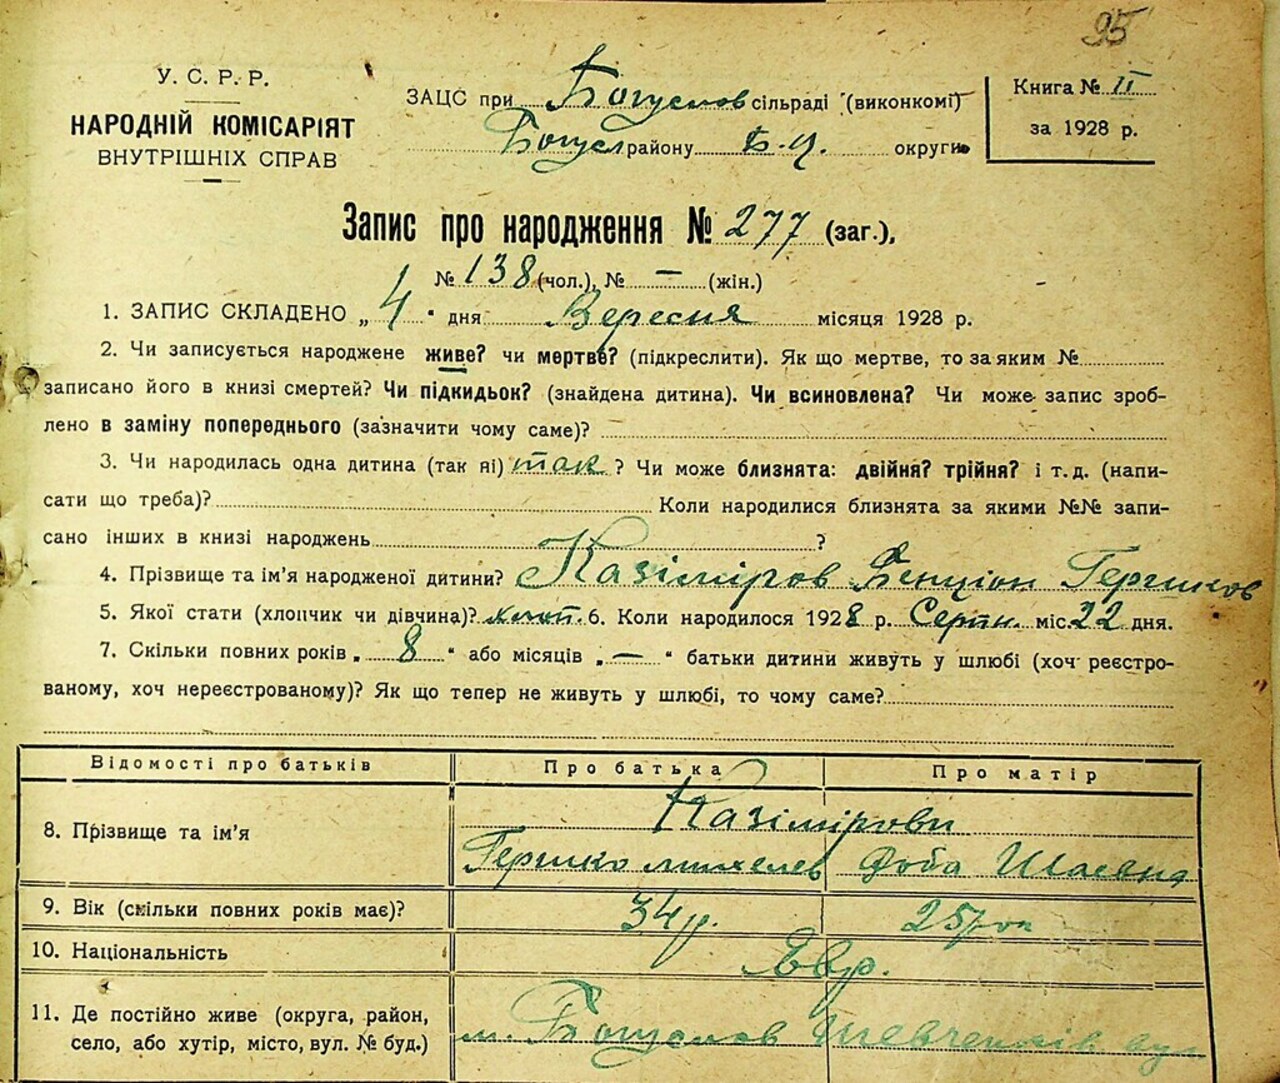 95
У. С. Р. Р.
НАРОДНІЙ КОМІСАРІЯТ
ВНУТРІШНІХ СПРАВ
ЗАЦС при Богуслов сільраді (виконкомі)
Богусл району Б-Ц. округи
Книга № II
за 1928 р.
Запис про народження № 277 (заг.),
№ 138 (чол.), № — (жін.)
1. ЗАПИС СКЛАДЕНО „ 4 " дня Вересня місяця 1928 р.
2. Чи записується народжене живе? чи мертве? (підкреслити). Як що мертве, то за яким №
записано його в книзі смертей? Чи підкидьок? (знайдена дитина). Чи всиновлена? Чи може запис зроб-
лено в заміну попереднього (зазначити чому саме)?
3. Чи народилась одна дитина (так яі) так ? Чи може близнята: двійня? трійня? і т. д. (напи-
сати що треба)? Коли народилися близнята за якими №№ запи-
сано інших в книзі народжень ?
4. Прізвище та ім'я народженої дитини? Казіміров Бенціон Гершков
5. Якої стати (хлопчик чи дівчина)? хлоп. 6. Коли народилося 1928 р. Серпн. міс. 22 дня.
7. Скільки повних років „ 8 " або місяців „ — " батьки дитини живуть у шлюбі (хоч реєстро-
ваному, хоч нереєстрованому)? Як що тепер не живуть у шлюбі, то чому саме?
Відомості про батьків Про батька Про матір
8. Прізвище та ім'я Казімірови
Гершко Михелев Доба Шаевна
9. Вік (скільки повних років має)? 34 р. 25 рок
10. Національність Євр.
11. Де постійно живе (округа, район,
село, або хутір, місто, вул. № буд.)
м. Богуслов Шевченків вул